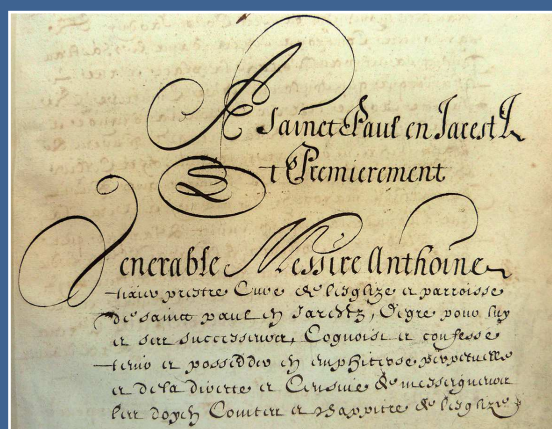 A Sainct Paul en Jarestz
Et Premierement
Venerable Messire Anthoine
prestre Curé de lesglize et parroisse
de sainct paul en Jaretz, de gre pour luy
et ses successeurs, Cognoist et confesse
tenir et posseder en emphiteose perpetuelle
et de la directe et Censive de messeigneurs
les doyen Comtes et chappitre de lesglize